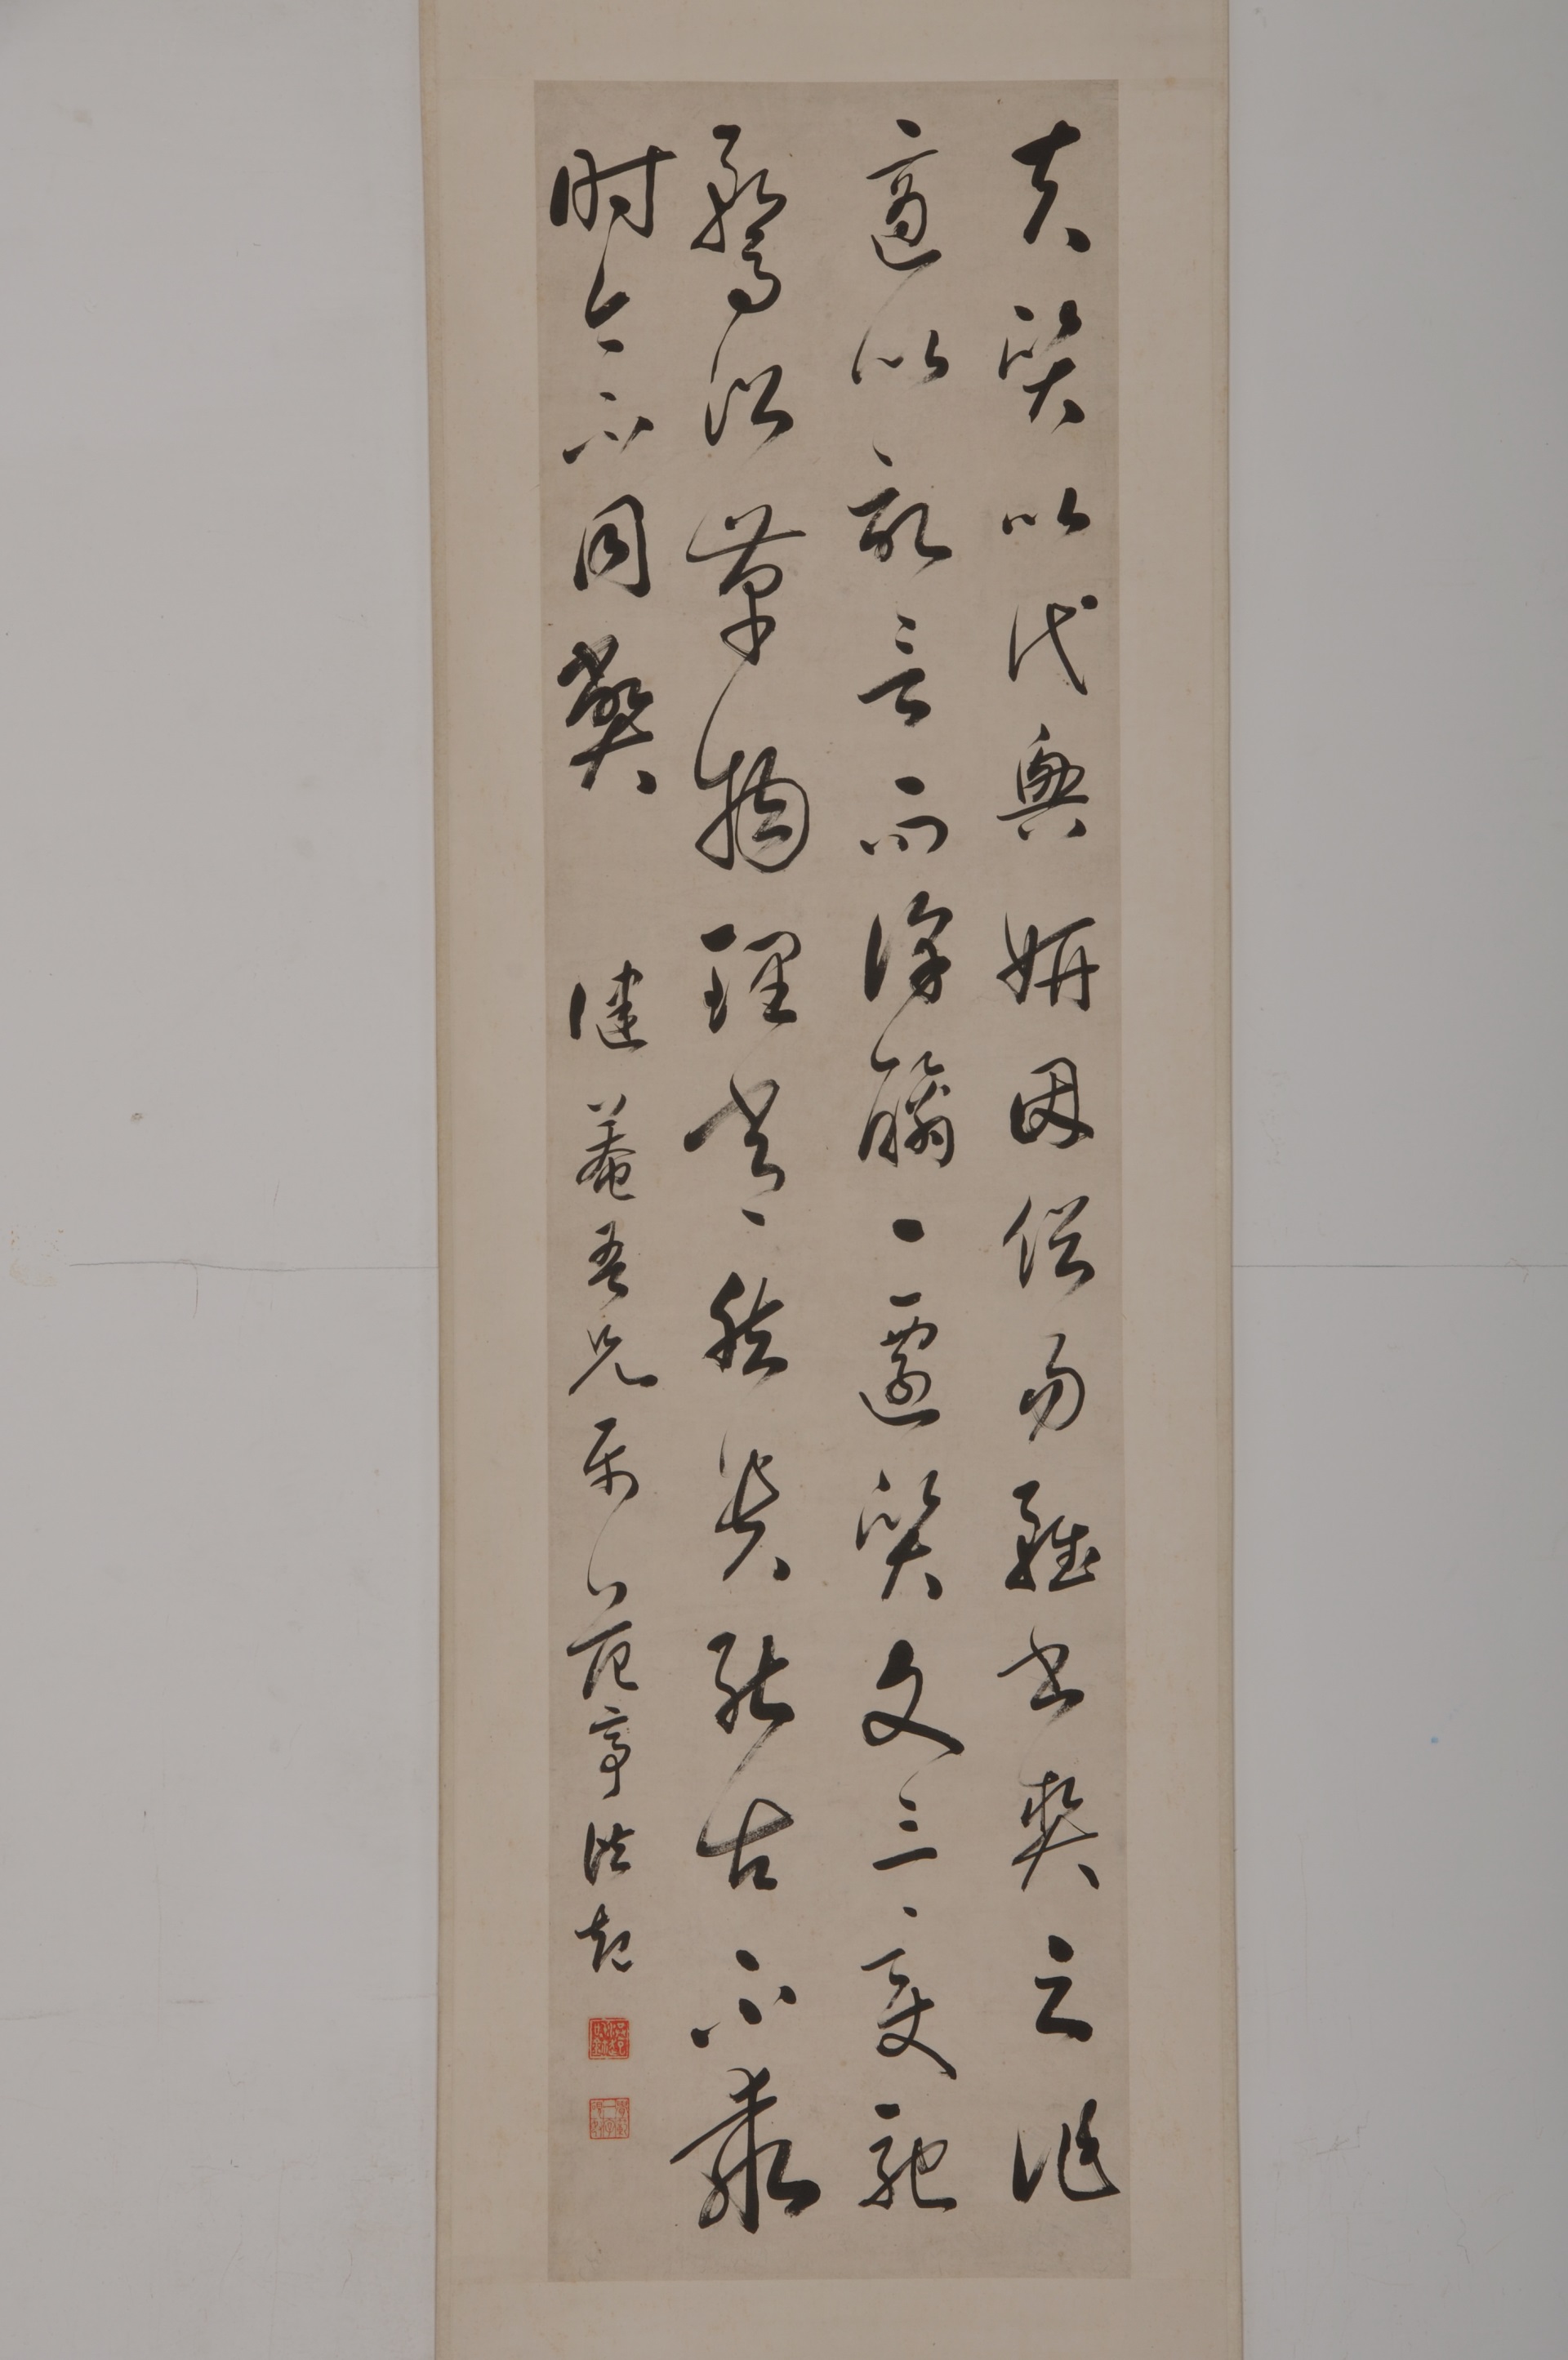 夫質以代興妍因俗易雖書契之作
適以記言而淳醨一遷質文三變馳
騖沿革物理常然貴能古不乖
時今不同弊 健菴吾兄屬